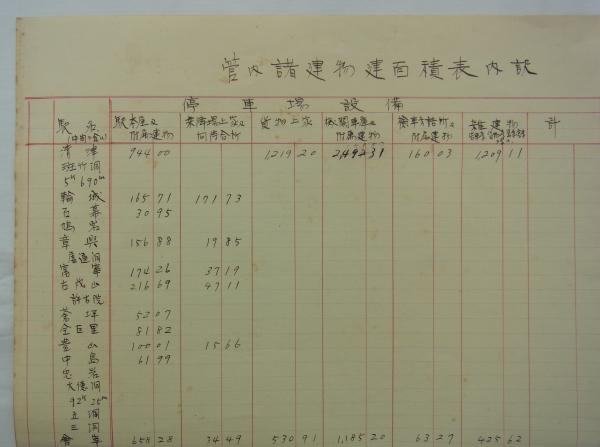 管内諸建物建面積表内訳
停車場設備
駅名 駅本屋及附属建物 乗降場上家及同待合所 貨物上家 機関車庫及附属建物 検車支給所及附属建物 雑建物 計
清津 944 00 1,219 20 2,492 31 160 03 1,209 11
班竹洞
5 690
輸城 165 71 171 73
石幕 30 95
鳩岩
章興 156 88 19 85
富寧 174 26 37 19
古茂山 216 69 47 11
許古院
蒼坪 52 07
全巨里 81 82
豊山 100 01 15 66
中島 61 99
忠岩
大徳洞
92 25
五洞
三洞
會寧 658 28 34 49 530 91 1,185 20 63 27 425 62